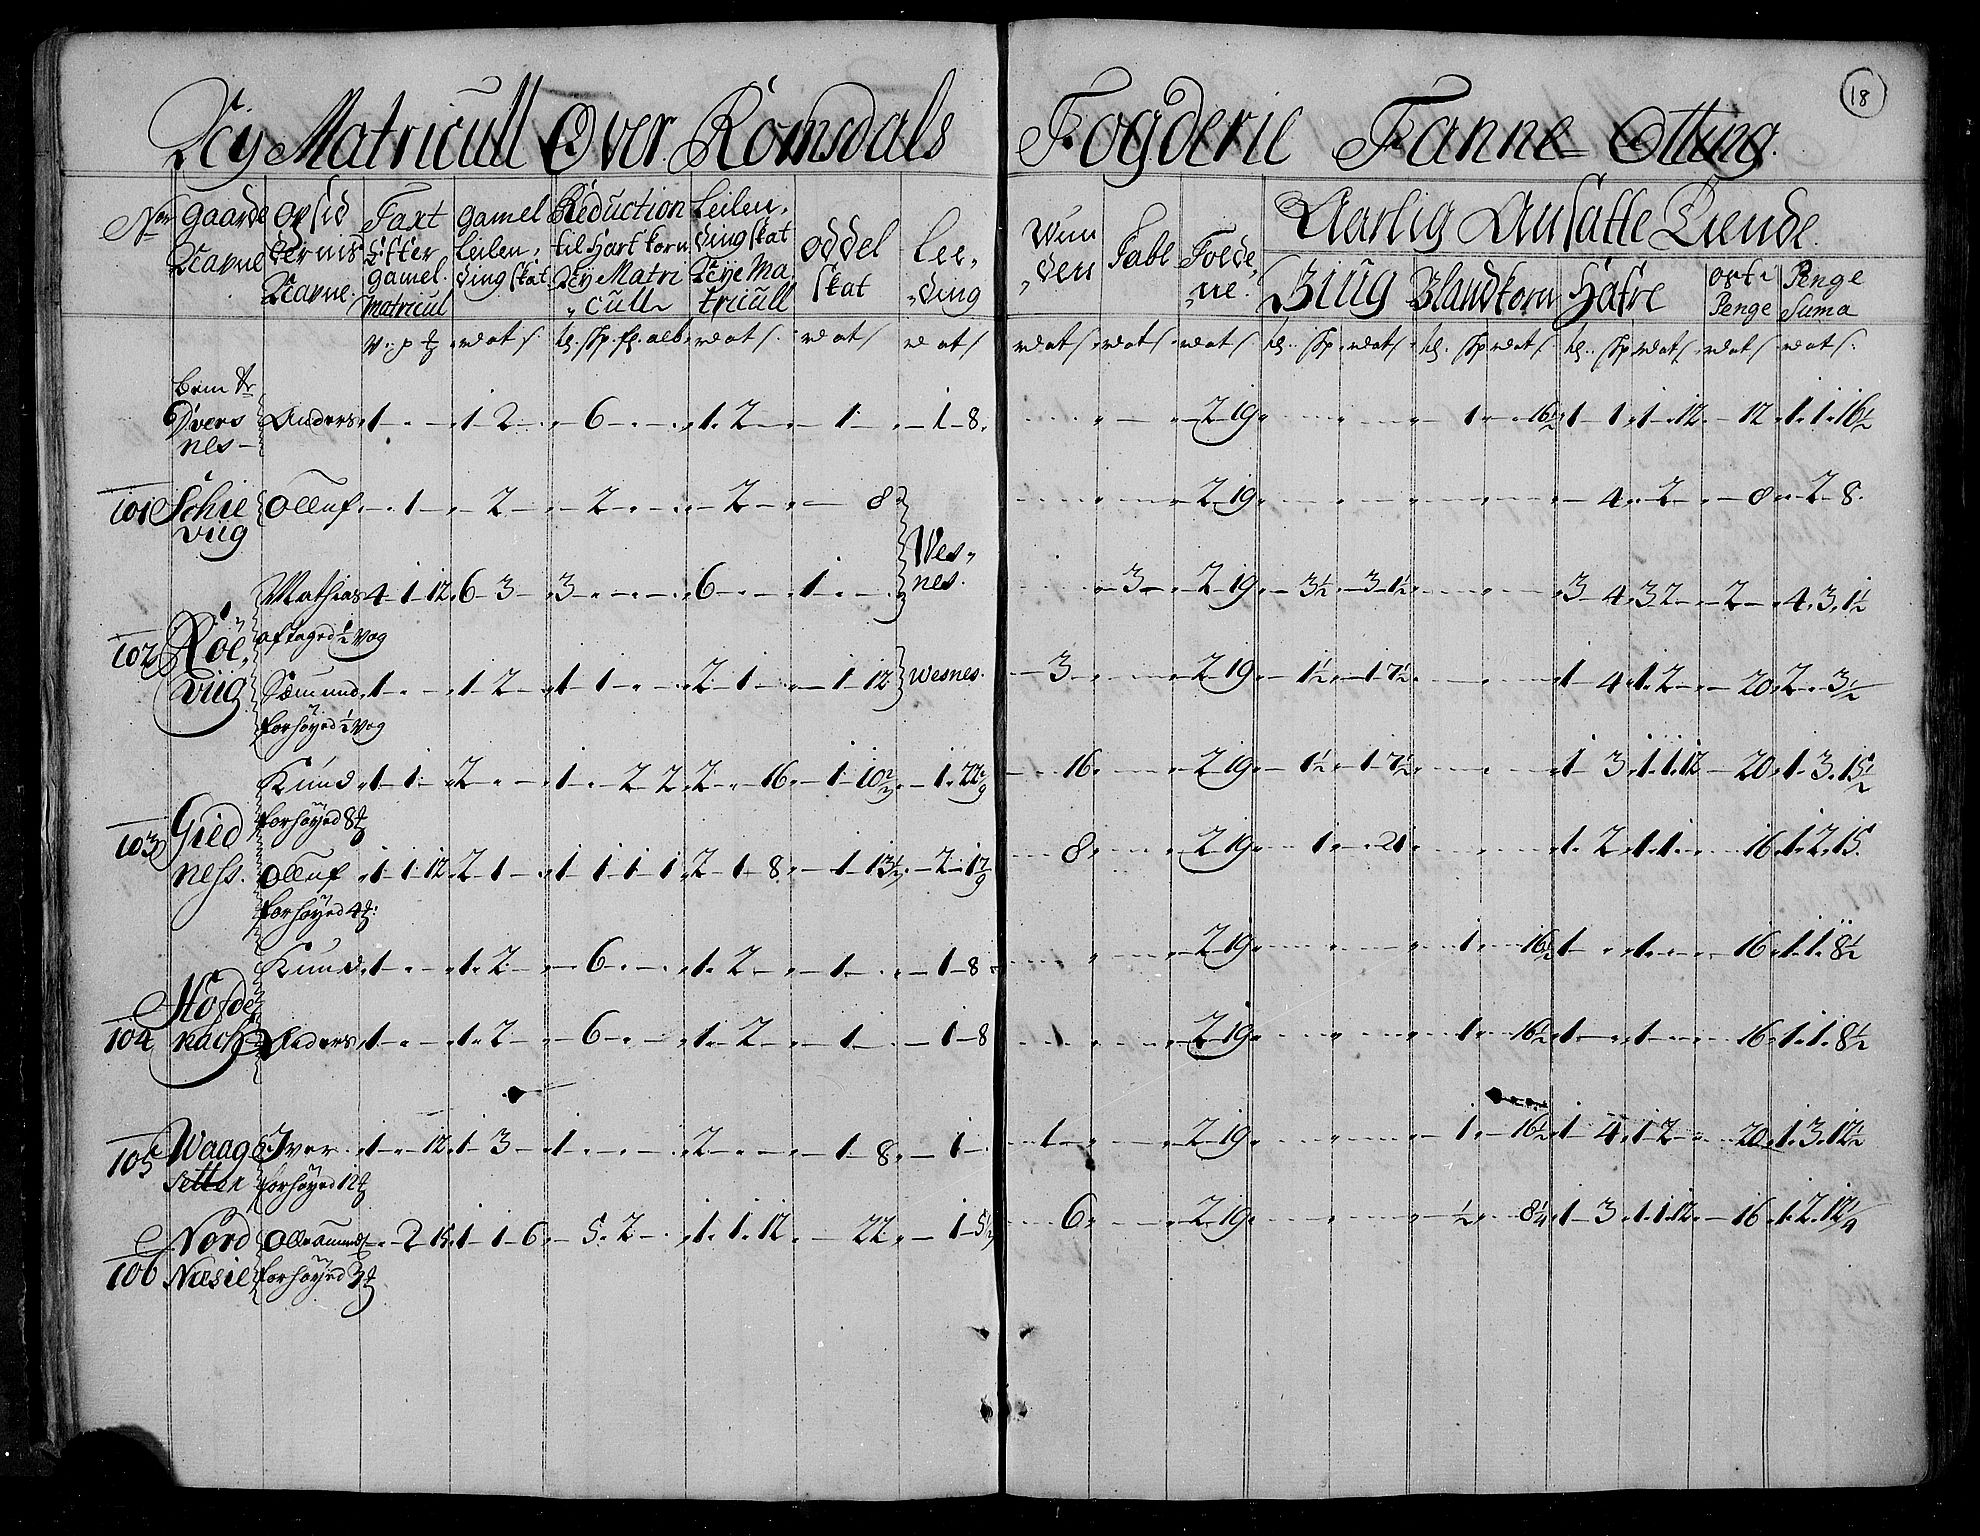 Ney Matricull Over Romsdals Fogderie Fanne Otting.
18
Nor gaarde Navne
opsid dernis Navne.
Taxt Efter gamel. Matricul
gamel Leilen, ding skat
Reduction til Hart korn Neye Matri cull
Leilen, ding skat Neye Ma tricull
oddel skat
Lee, ding
Wun den
Table
Foede, ne.
Aarlig Ansatte Tiende.
Biug Blandkorn Hafre
ost Penge
Penge Suma
Bem
Overs nes Anders 1 - - 1 2 - - 6 - - 1 2 - - 1 - - 1 - 8 - - 2 19 - - 1 - 16½ 1 - 1 1 - 12 - 12 1 1 16½
101 Schie vug Olluf - 1 - - 2 - - 2 - - - 2 - - - 8 - - 2 19 - - 4 - 2 - - 8 - 2 - 8
Wes nes.
102 Röe, vug Mathias 4 - 1 - 12 6 - 3 - 3 - - - 6 - - 1 - - - 3 - 2 19 - 3½ - 3 - 1½ - - 3 - 4 3 2 - 2 - 4 3 1½
aftaged ½ Vog
Sæmund 1 - - 1 2 - 1 1 - - 2 - 1 - - 1 12 Wesnes. - 3 - - 2 19 - 1½ - 1 7½ - - 1 4 1 2 - - 20 2 - 3½
forhøyed ½ Vog
103 Gied ness. Knud 1 1 - 2 - - 1 - 2 2 2 - 16 - 1 10 2/7 - 1 22 2/9 16 - - 2 19 - 1½ - 1 7½ - - 1 3 1 1 12 - 20 1 3 15½
forhøyed 8
Olluf 1 1 12 2 1 - 1 1 1 1 2 1 8 - 1 13 - 2 - 8 - - 2 19 - 1 - 21 - - 1 2 1 1 - 16 1 2 15
forhøyed 4
Knud 1 - - 1 2 - - 6 - - 1 2 - - 1 - - 1 - 8 - - 2 19 - - 1 - 16½ 1 - - 1 - - 16 1 1 8½
104 Hofde nach Anders 1 - - 1 2 - - 6 - - 1 2 - - 1 - - 1 - 8 - - 2 19 - - 1 - 16½ 1 - - 1 - - 16 1 1 8½
105 Waag setter Iver 1 - 12 1 - 3 - 1 - - - 2 - - - 1 - 8 - 1 - - 1 - - 2 19 - - 1 - 16½ 1 - 4 1 2 - - 20 1 3 12½
forhøyed 12
106 Nord Næsie - 2 15 1 - 1 - 6 - 5 2 - 1 1 12 - 22 - 1 - 5½ 6 - - 2 19 - - ½ - 8¼ 1 - 3 1 1 12 - 16 1 2 12¼
forhøyed 3